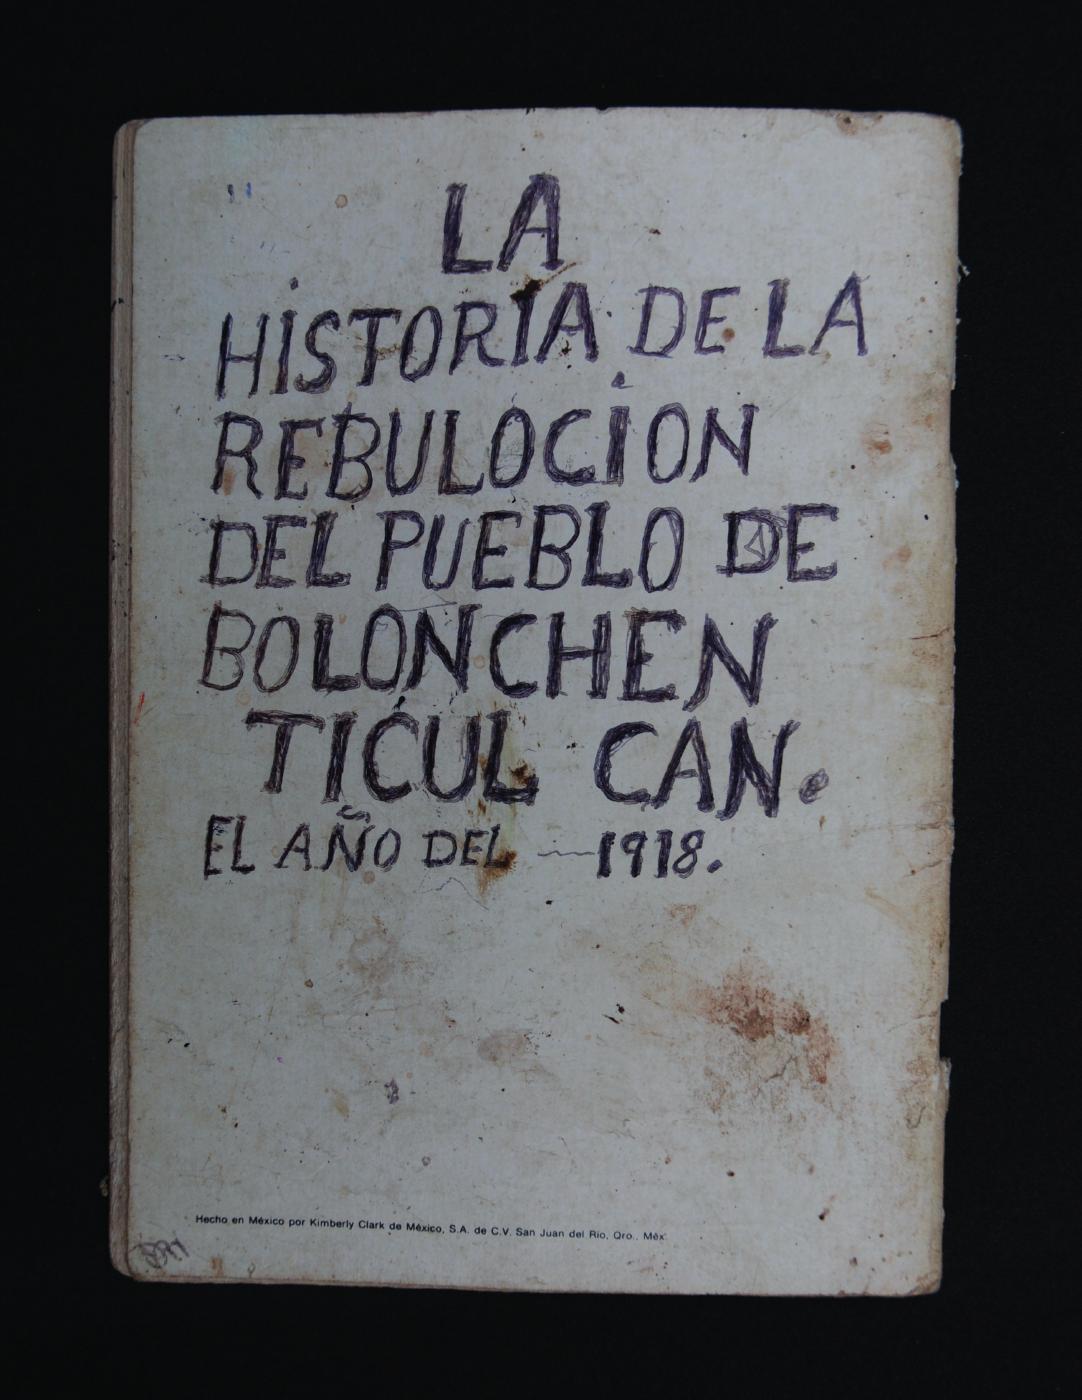 LA
HISTORIA DE LA
REBULOCION
DEL PUEBLO DE
BOLONCHEN
TICUL CAN.
EL AÑO DEL — 1918.
Hecho en México por Kimberly Clark de México, S.A. de C.V. San Juan del Rio, Qro., Méx.